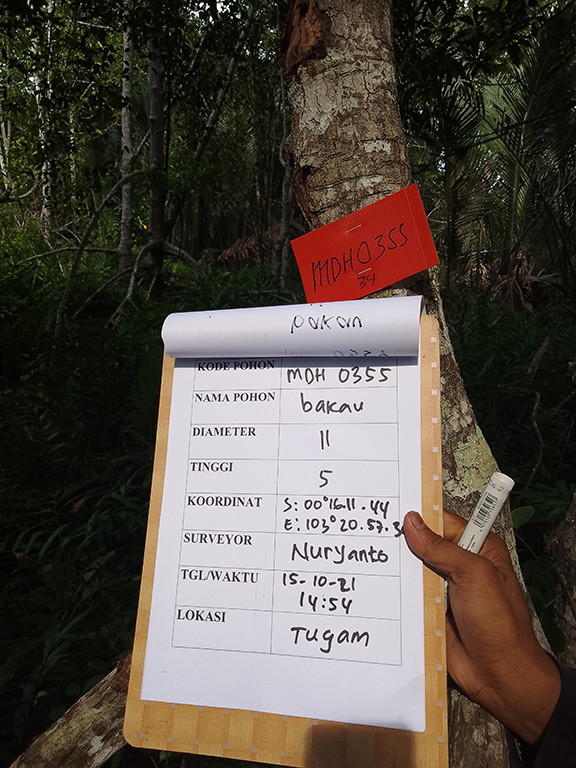 MDH 0355
34
pakan
KODE POHON MDH 0355
NAMA POHON bakau
DIAMETER 11
TINGGI 5
KOORDINAT S: 00°16.11.44
E: 103°20.57.3
SURVEYOR Nuryanto
TGL/WAKTU 15-10-21
14:54
LOKASI Tugam